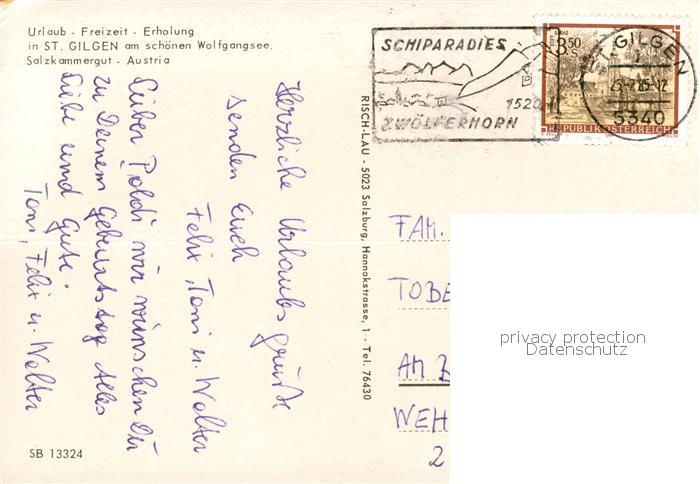 Urlaub - Freizeit - Erholung
in ST. GILGEN am schönen Wolfgangsee.
Salzkammergut - Austria
SCHIPARADIES
1520 m
ZWÖLFERHORN
3.50
S
REPUBLIK ÖSTERREICH
GILGEN
5340
Herzliche Urlaubsgrüße
senden Euch
Felix, Toni u. Walter
Lieber Poldi wir wünschen Du
zu Deinem Geburtstag Alles
Liebe und Gute.
Toni, Felix u. Walter
RISCH-LAU - 5023 Salzburg, Hannakstrasse, 1 - Tel. 76430
FAM.
TOBE
AM
WEH
2
privacy protection
Datenschutz
SB 13324